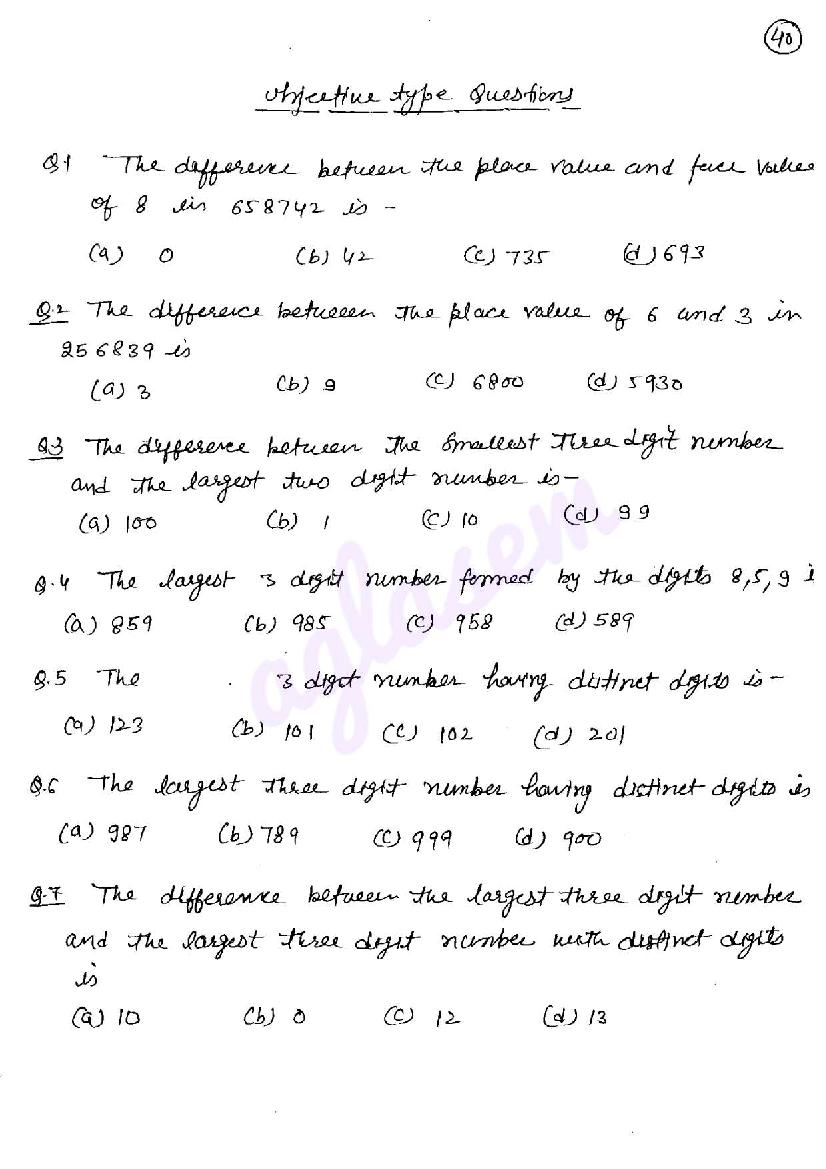 40
Objective type Questions
Q1 The difference between the place value and face value
of 8 in 658742 is -
(a) 0 (b) 42 (c) 735 (d) 693
Q.2 The difference between the place value of 6 and 3 in
256839 is
(a) 3 (b) 9 (c) 6800 (d) 5930
Q3 The difference between the smallest three digit number
and the largest two digit number is -
(a) 100 (b) 1 (c) 10 (d) 99
Q.4 The largest 3 digit number formed by the digits 8,5,9 i
(a) 859 (b) 985 (c) 958 (d) 589
Q.5 The . 3 digit number having distinct digits is -
(a) 123 (b) 101 (c) 102 (d) 201
Q.6 The largest three digit number having distinct digits is
(a) 987 (b) 789 (c) 999 (d) 900
Q.7 The difference between the largest three digit number
and the largest three digit number with distinct digits
is
(a) 10 (b) 0 (c) 12 (d) 13
aglasem